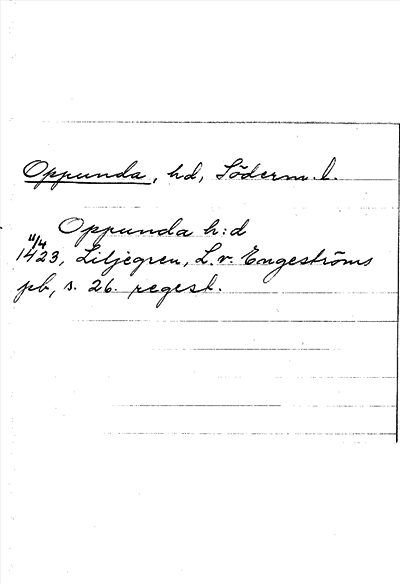 Oppunda, hd, Söderm. l.
Oppunda h:d
11/4
1423, Liljegren, L. v. Engeströms
pb, s. 26. regest.